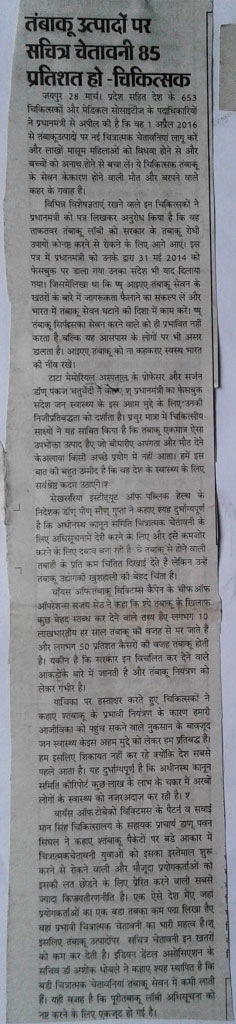 तंबाकू उत्पादों पर
सचित्र चेतावनी 85
प्रतिशत हो -चिकित्सक
जयपुर 28 मार्च। प्रदेश सहित देश के 653
चिकित्सकों और मेडिकल सोसाइटीज के पदाधिकारियों
ने प्रधानमंत्री से अपील की है कि वह 1 अप्रैल 2016
से तंबाकूउत्पाद पर नई चित्रात्मक चेतावनियां लागू करें
और लाखों मासूम महिलाओं को विधवा होने से और
बच्चों को अनाथ होने से बचा लें। ये चिकित्सक तंबाकू
के सेवन केकारण होने वाली मौत और बरपने वाले
कहर के गवाह हैं।
विभिन्न विशेषज्ञताएं रखने वाले इन चिकित्सकों ने
प्रधानमंत्री को पत्र लिखकर अनुरोध किया है कि वह
ताकतवर तंबाकू लॉबी को सरकार के तंबाकू रोधी
उपायों कोनष्ट करने से रोकने के लिए आगे आएं। इस
पत्र में प्रधानमंत्री को उनके द्वारा 31 मई 2014 को
फेसबुक पर डाला गया उनका संदेश भी याद दिलाया
गया। जिसमेलिखा था कि ष्षु आइएए तंबाकू सेवन के
खतरों के बारे में जागरूकता फैलाने का संकल्प लें और
भारत में तंबाकू सेवन घटाने की दिशा में काम करें। ष्षु
तंबाकू सिर्फइसका सेवन करने वाले को ही प्रभावित नहीं
करता है बल्कि यह आसपास के लोगों पर भी असर
डालता है। आइएए तंबाकू को ना कहकरए स्वस्थ भारत
की नींव रखें।
टाटा मेमोरियल अस्पताल के प्रोफेसर और सर्जन
डॉण् पंकज चतुर्वेदी ने प्रधानमंत्री का फेसबुक
संदेश जन स्वास्थ्य के इस अहम मुद्दे के लिए उनकी
निजीप्रतिबद्धता को दर्शाता है। प्रचुर मात्रा में चिकित्सीय
साक्ष्यों ने यह साबित किया है कि तंबाकू एकमात्र ऐसा
उपभोक्ता उत्पाद हैए जो बीमारीए अपंगता और मौत देने
केअलावा किसी अच्छे प्रयोग में नहीं आता। हमें इस
बात की बहुत उम्मीद है कि वह देश के स्वास्थ्य के लिए
सर्वश्रेष्ठ कदम उठाएंगे।
सेखसरिया इंस्टीट्यूट ऑफ पब्लिक हेल्थ के
निदेशक डॉण् पीण् सीण् गुप्ता ने कहाए श्यह दुर्भाग्यपूर्ण
है कि अधीनस्थ कानून समिति चित्रात्मक चेतावनी के
लिए अधिसूचनामें देरी करने के लिए और इसे कमजोर
करने के लिए दबाव बना रही है। वे तंबाकू से होने वाली
तबाही के प्रति कम चिंतित दिखाई देते हैं लेकिन उन्हें
तंबाकू उद्योगकी खुशहाली की बेहद चिंता है।
वॉयस ऑफतंबाकू विक्टिम्स कैंपेन के चीफऑफ
ऑपरेशन्स संजय सेठ ने कहा कि श्ये तंबाकू के खिलाफ
कुछ बेहद स्तब्ध कर देने वाले तथ्य हैंए लगभग 10
लाखभारतीय हर साल तंबाकू की वजह से मर जाते हैं
और लगभग 50 प्रतिशत कैंसरों की वजह तंबाकू होती
है। यकीन है कि सरकार इन विचलित कर देने वाले
आकड़ोंके बारे में जानती है और तंबाकू नियंत्रण को
लेकर गंभीर है।
याचिका पर हस्ताक्षर करते हुए चिकित्सकों ने
कहाए श्तंबाकू के प्रभावी नियंत्रण के कारण हमारी
आजीविका को पहुंच सकने वाले नुकसान के बावजूद
जन स्वास्थ्य केइस अहम मुद्दे को लेकर हम प्रतिबद्ध हैं।
हम इसलिए शिकायत नहीं कर रहे क्योंकि देश सबसे
पहले आता है। यह दुर्भाग्यपूर्ण है कि अधीनस्थ कानून
समिति कीरिपोर्ट कुछ लाख के लाभ के चक्कर में अरबों
लोगों के स्वास्थ्य को नजरअंदाज कर रही है। श्
वायॅस ऑफटोबेको विक्टिमस के पैटर्न व सवाई
मान सिंह चिकित्सालय के सहायक प्राचार्य डाण् पवन
सिंघल ने कहाए श्तंबाकू पैकेटों पर बड़े आकार में
चित्रात्मकचेतावनी युवाओं को इसका इस्तेमाल शुरू
करने से रोकने वाली और मौजूदा प्रयोगकर्ताओं को
इसकी लत छोड़ने के लिए प्रेरित करने वाली सबसे
ज्यादा किफायतीरणनीति है। एक ऐसे देश मेंए जहां
प्रयोगकर्ताओं का एक बड़ा तबका कम पढ़ा लिखा हैए
वहां प्रभावी चित्रात्मक चेतावनी का भारी महत्व है।श्
इसलिए तंबाकू उत्पादोंपर सचित्र चेतावनी इन खतरों
को कम कर देती है। इंडियन डेंटल असोसिएशन के
सचिव डॉ अशोक धोबले ने कहाए श्यह स्थापित है कि
बड़ी चित्रात्मक चेतावनियां तंबाकू सेवन में कमी लाती
हैं। यही वजह है कि पूरीतंबाकू लॉबी अधिसूचना को
नष्ट करने के लिए एकजुट हो गई है।